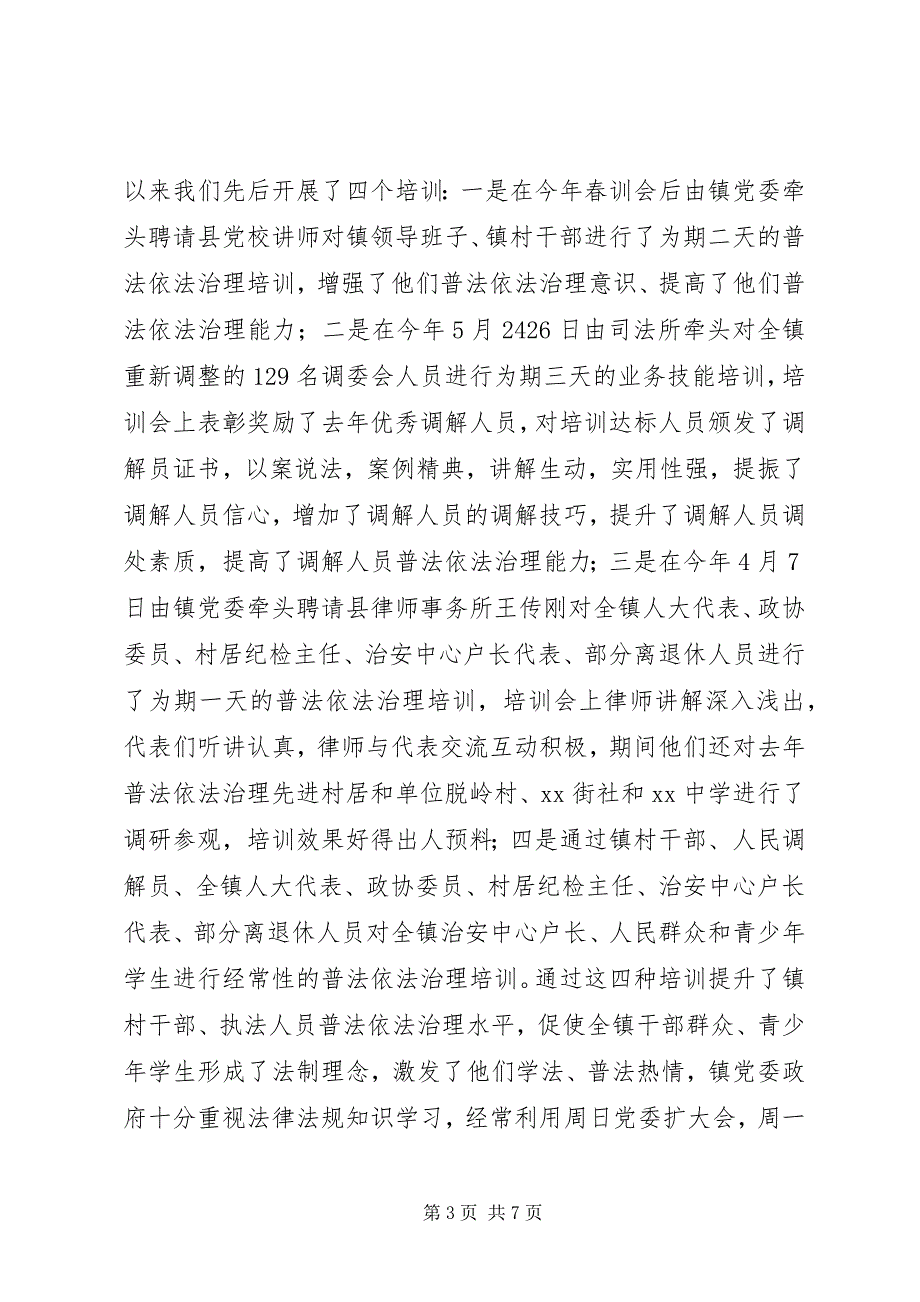 以来我们先后开展了四个培训：一是在今年春训会后由镇党委牵
头聘请县党校讲师对镇领导班子、镇村干部进行了为期二天的普
法依法治理培训，增强了他们普法依法治理意识、提高了他们普
法依法治理能力；二是在今年 5 月 2426 日由司法所牵头对全镇
重新调整的 129 名调委会人员进行为期三天的业务技能培训，培
训会上表彰奖励了去年优秀调解人员，对培训达标人员颁发了调
解员证书，以案说法，案例精典，讲解生动，实用性强，提振了
调解人员信心，增加了调解人员的调解技巧，提升了调解人员调
处素质，提高了调解人员普法依法治理能力；三是在今年 4 月 7
日由镇党委牵头聘请县律师事务所王传刚对全镇人大代表、政协
委员、村居纪检主任、治安中心户长代表、部分离退休人员进行
了为期一天的普法依法治理培训，培训会上律师讲解深入浅出，
代表们听讲认真，律师与代表交流互动积极，期间他们还对去年
普法依法治理先进村居和单位脱岭村、xx 街社和 xx 中学进行了
调研参观，培训效果好得出人预料；四是通过镇村干部、人民调
解员、全镇人大代表、政协委员、村居纪检主任、治安中心户长
代表、部分离退休人员对全镇治安中心户长、人民群众和青少年
学生进行经常性的普法依法治理培训。通过这四种培训提升了镇
村干部、执法人员普法依法治理水平，促使全镇干部群众、青少
年学生形成了法制理念，激发了他们学法、普法热情，镇党委政
府十分重视法律法规知识学习，经常利用周日党委扩大会，周一
第 3 页 共 7 页